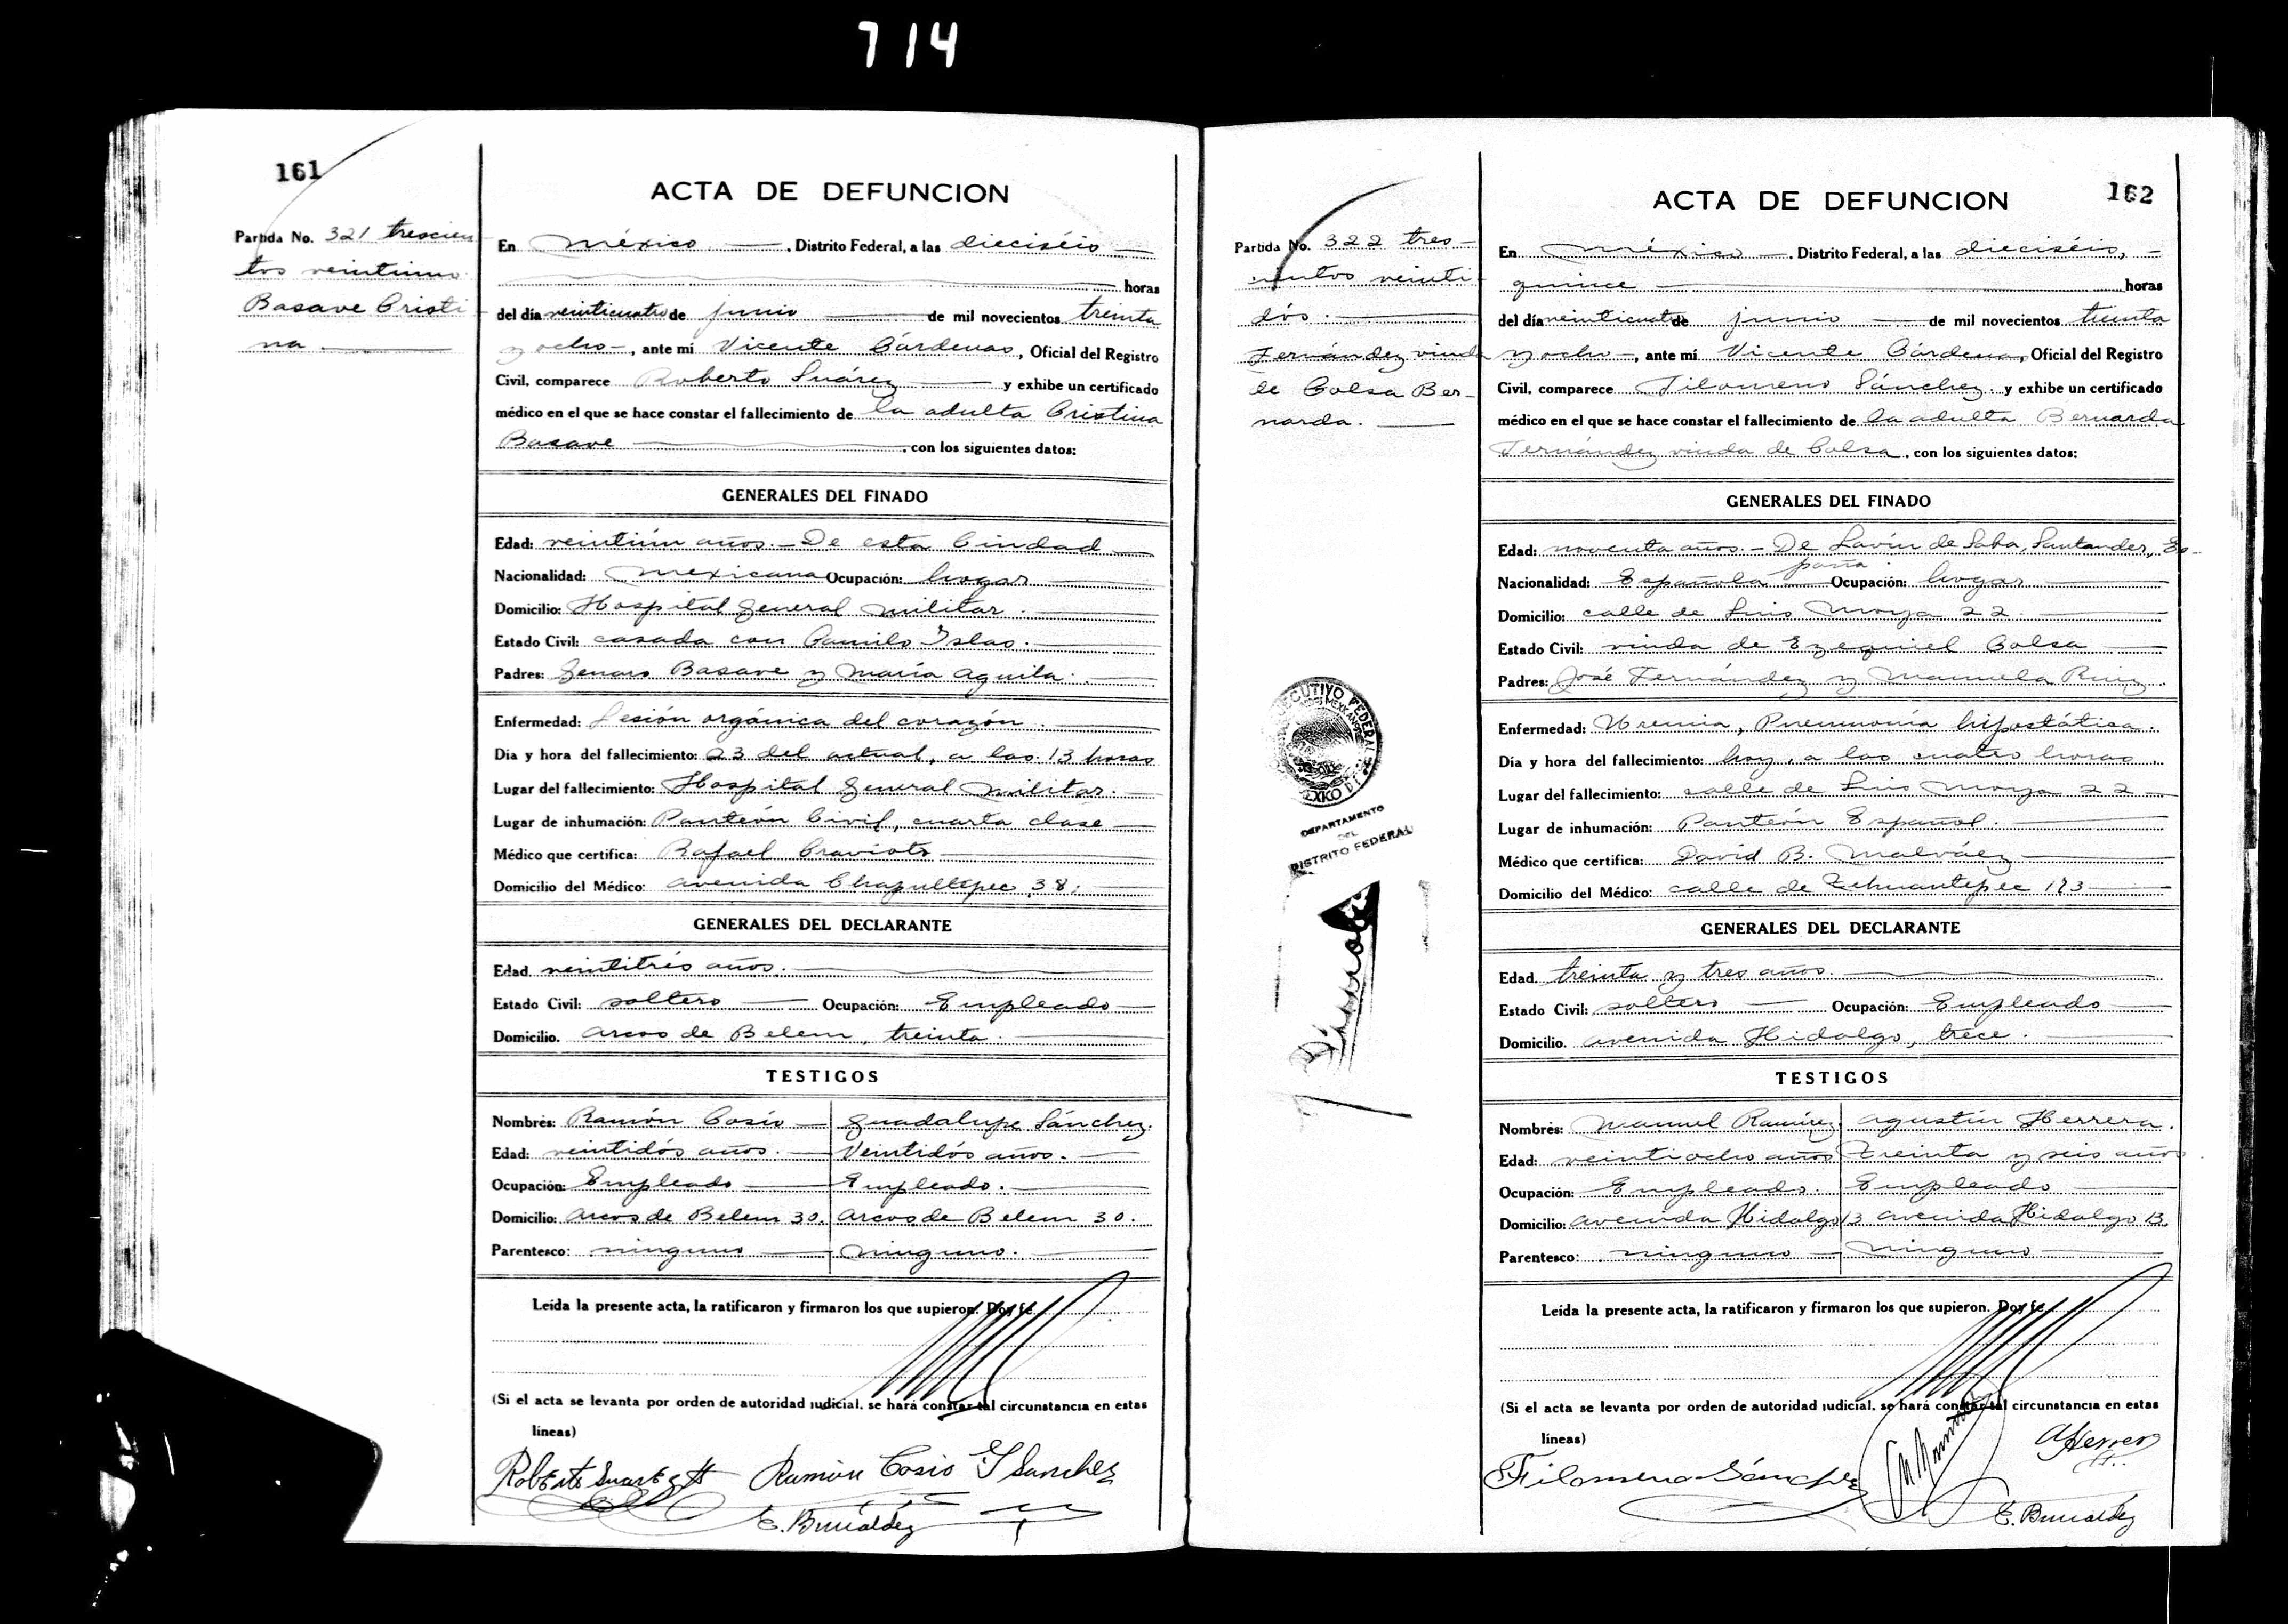 714
161
Partida No. 321 trescien
tos veintiuno
Basave Cristi
na
ACTA DE DEFUNCION
En México, Distrito Federal, a las dieciséis
horas
del día veinticuatro de junio de mil novecientos treinta
y ocho, ante mí Vicente Cárdenas, Oficial del Registro
Civil, comparece Roberto Suárez y exhibe un certificado
médico en el que se hace constar el fallecimiento de la adulta Cristina
Basave, con los siguientes datos:
GENERALES DEL FINADO
Edad: veintiún años.- De esta Ciudad
Nacionalidad: Mexicana Ocupación: hogar
Domicilio: Hospital General Militar.
Estado Civil: casada con Camilo Islas.
Padres: Genaro Basave y María Aguila.
Enfermedad: Lesión orgánica del corazón.
Dia y hora del fallecimiento: 23 del actual, a las 13 horas
Lugar del fallecimiento: Hospital General Militar.
Lugar de inhumación: Panteón Civil, cuarta clase
Médico que certifica: Rafael Cravioto
Domicilio del Médico: avenida Chapultepec 38.
GENERALES DEL DECLARANTE
Edad. veintitrés años.
Estado Civil: soltero Ocupación: Empleado
Domicilio. Arcos de Belem, treinta.
TESTIGOS
Nombres: Ramón Cosío Guadalupe Sánchez.
Edad: veintidós años. Veintidós años.
Ocupación: Empleado Empleado.
Domicilio: Arcos de Belem 30. Arcos de Belem 30.
Parentesco: ninguno ninguno.
Leída la presente acta, la ratificaron y firmaron los que supieron. Doy fe.
(Si el acta se levanta por orden de autoridad judicial, se hará constar tal circunstancia en estas
líneas)
Roberto Suarez Ramón Cosío G Sanchez
162
Partida No. 322 tres-
cientos veinti
dós.
Fernández viuda
de Colsa Ber-
narda.
EJECUTIVO FEDERAL
DEPARTAMENTO
DEL
DISTRITO FEDERAL
ACTA DE DEFUNCION
En México, Distrito Federal, a las dieciséis,
quince horas
del día veinticuatro de junio de mil novecientos treinta
y ocho, ante mí Vicente Cárdenas, Oficial del Registro
Civil, comparece Filomeno Sánchez y exhibe un certificado
médico en el que se hace constar el fallecimiento de la adulta Bernarda
Fernández viuda de Colsa, con los siguientes datos:
GENERALES DEL FINADO
Edad: noventa años.- De Lavín de Saba, Santander, Es-
paña.
Nacionalidad: Española Ocupación: hogar
Domicilio: calle de Luis Moya 22.
Estado Civil: viuda de Ezequiel Colsa
Padres: José Fernández y Manuela Ruiz.
Enfermedad: Uremia, Pneumonía hipostática.
Dia y hora del fallecimiento: hoy, a las cuatro horas.
Lugar del fallecimiento: calle de Luis Moya 22
Lugar de inhumación: Panteón Español.
Médico que certifica: David B. Malváez
Domicilio del Médico: calle de Tehuantepec 173
GENERALES DEL DECLARANTE
Edad. treinta y tres años.
Estado Civil: soltero Ocupación: Empleado
Domicilio. avenida Hidalgo, trece.
TESTIGOS
Nombres: Manuel Ramírez. Agustín Herrera.
Edad: veintiocho años Treinta y seis años
Ocupación: Empleado. Empleado
Domicilio: avenida Hidalgo 13 avenida Hidalgo 13.
Parentesco: ninguno ninguno
Leída la presente acta, la ratificaron y firmaron los que supieron. Doy fe.
(Si el acta se levanta por orden de autoridad judicial, se hará constar tal circunstancia en estas
líneas)
Filomeno Sánchez AHerrera